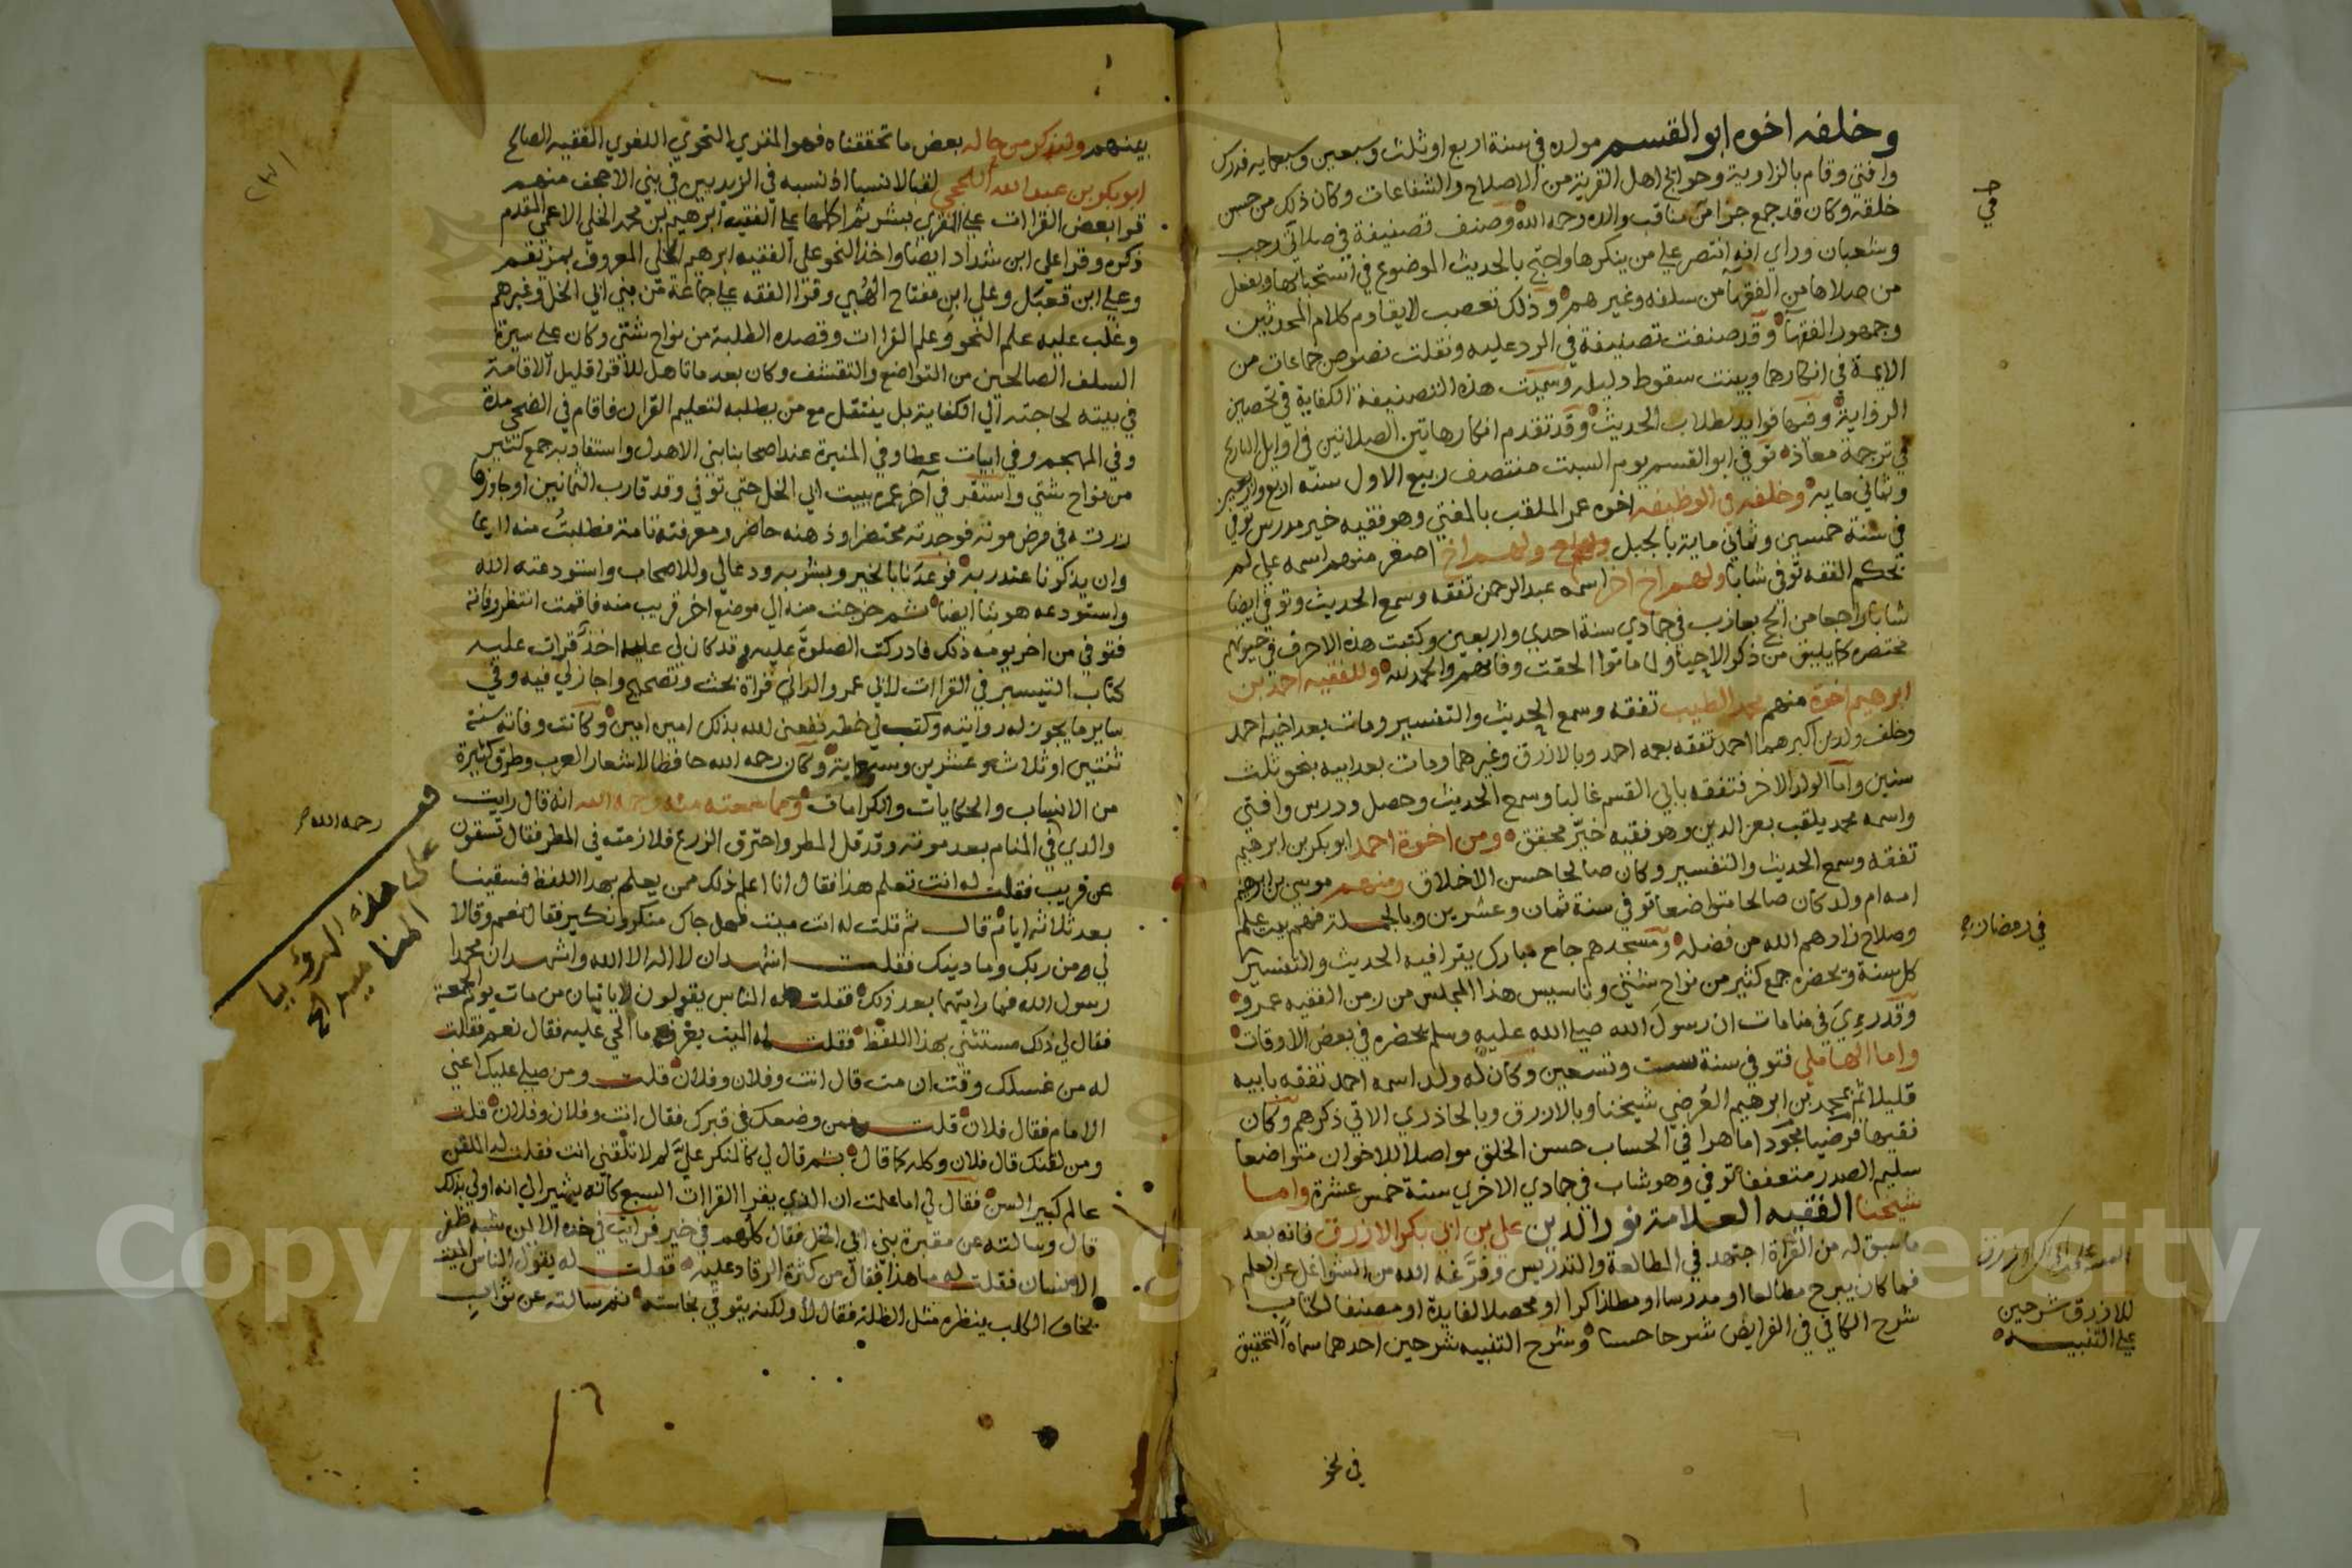 وخلفه اخوه ابو القسم مولده في سنة اربع او ثلث وسبعين وسبعمايه فدرس
وافتي وقام بالزاوية وحوايج اهل القرية من الاصلاح والشفاعات وكان ذلك من حسن
خلقه وكان قد جمع جزا من مناقب والده رحمه الله وصنف تصنيفة في صلاتي رجب
وشعبان وراي انه انتصر علي من ينكرها واحتج بالحديث الموضوع في استحبابها وبفعل
من صلاها من الفقها من سلفه وغيرهم وذلك تعصب لا يقاوم كلام المحدثين
وجمهور الفقها وقد صنفت تصنيفة في الرد عليه ونقلت نصوص جماعات من
الايمة في انكارها وبينت سقوط دليله وسميت هذه التصنيفة الكفاية في تحصين
الرواية وفيها فوايد لطلاب الحديث وقد تقدم انكار هاتين الصلاتين في اوايل التاريخ
في ترجمة معاذ توفي ابو القسم يوم السبت منتصف ربيع الاول سنه اربع واربعين
وثماني مايه وخلفه في الوظيفه اخوه عمر الملقب بالمفتي وهو فقيه خير مدرس توفي
في سنة خمسين وثماني ماية بالجبل ولهم اخ اصغر منهم اسمه علي لم
يحكم الفقه توفي شابا ولهم اخ اخر اسمه عبد الرحمن تفقه وسمع الحديث وتوفي ايضا
شابا راجعا من الحج بعازب في جمادي سنة احدي واربعين وكتبت هذه الاحرف في حيوتهم
مختصرة كما يليق من ذكر الاحيا ولما ماتوا الحقت وفاتهم والحمد لله وللفقيه احمد بن
ابرهيم اخوة منهم محمد الطيب تفقه وسمع الحديث والتفسير ومات بعد اخيه احمد
وخلف ولدين اكبرهما احمد تفقه بعمه احمد وبالازرق وغيرهما ومات بعد ابيه بنحو ثلث
سنين واما الولد الاخر فتفقه بابي القسم غالبا وسمع الحديث وحصل ودرس وافتي
واسمه محمد يلقب بعز الدين وهو فقيه خير محقق ومن اخوة احمد ابو بكر بن ابرهيم
تفقه وسمع الحديث والتفسير وكان صالحا حسن الاخلاق ومنهم موسي بن ابرهيم
امه ام ولد كان صالحا متواضعا توفي سنة ثمان وعشرين وبالجملة فهم بيت علم
وصلاح زادهم الله من فضله ومسجدهم جامع مبارك يقرا فيه الحديث والتفسير
كل سنة ويحضره جمع كثير من نواح شتي وتاسيس هذا المجلس من زمن الفقيه عمرو
وقد رءي في منامات ان رسول الله صلي الله عليه وسلم يحضره في بعض الاوقات
واما الهاملي فتوفي سنة ست وتسعين وكان له ولد اسمه احمد تفقه بابيه
قليلا ثم بمحمد بن ابرهيم العرضي شيخنا وبالازرق وبالحاذري الاتي ذكرهم وكان
فقيها فرضيا مجودا ماهرا في الحساب حسن الخلق مواصلا للاخوان متواضعا
سليم الصدر متعففا توفي وهو شاب في جمادي الاخري سنة خمس عشرة واما
شيخنا الفقيه العلامة نور الدين علي بن ابي بكر الازرق فانه بعد
ما سبق له من القراة اجتهد في المطالعة والتدريس وفرغه الله من الشواغل عن العلم
فما كان يبرح مطالعا او مدرسا او مذاكرا او محصلا لفايدة او مصنفا لكتاب
شرح الكافي في الفرايض شرحا حسنا وشرح التنبيه شرحين احدهما سماه التحقيق
في نحو
في رمضان
للازرق شرحين
علي التنبيه
بينهم ولنذكر من حاله بعض ما تحققناه فهو المقري النحوي اللغوي الفقيه الصالح
ابو بكر بن عبد الله اللحجي لقبا لا نسبا اذ نسبه في الزيديين في بني الاعجف منهم
قرا بعض القراات علي المقري بشر ثم اكملها علي الفقيه ابرهيم بن محمد الخلي الاعمي المقدم
ذكره وقرا علي ابن شداد ايضا واخذ النحو علي الفقيه ابرهيم الخلي المعروف بمزنقم
وعلي ابن قعبل وعلي ابن مفتاح الهبي وقرا الفقه علي جماعة من بني ابي الخل وغيرهم
وغلب عليه علم النحو وعلم القراات وقصده الطلبة من نواح شتي وكان علي سيرة
السلف الصالحين من التواضع والتقشف وكان بعد ما تاهل للاقرا قليل الاقامة
في بيته لحاجته الي الكفاية بل ينتقل مع من يطلبه لتعليم القران فاقام في الضحي مدة
وفي المهجم وفي ابيات عطا وفي المنيرة عند اصحابنا بني الاهدل واستفاد به جمع كثير
من نواح شتي واستقر في آخر عمره ببيت ابي الخل حتي توفي وقد قارب الثمانين او جاوزها
زرته في مرض موته فوجدته محتضرا وذهنه حاضر ومعرفته تامة فطلبت منه الدعا
وان يذكرنا عند ربه فوعدنا بالخير وبشر به ودعا لي وللاصحاب واستودعته الله
واستودعه هو بنا ايضا ثم خرجت منه الي موضع اخر قريب منه فاقمت انتظر وفاته
فتوفي من اخر يومه ذلك فادركت الصلوة عليه وقد كان لي عليه اخذ قرات عليه
كتاب التيسير في القراات لابي عمرو الداني قراة بحث وتصحيح واجاز لي فيه وفي
ساير ما يجوز له روايته وكتب لي خطه نفعني الله بذلك امين امين وكانت وفاته سنة
ثنتين او ثلاث وعشرين وثمان ماية وكان رحمه الله حافظا لاشعار العرب وطرق كثيرة
من الانساب والحكايات والكرامات ومما سمعته منه رحمه الله انه قال رايت
والدي في المنام بعد موته وقد قل المطر واحترق الزرع فلازمته في المطر فقال تسقون
عن قريب فقلت له انت تعلم هذا فقال انا اعلم ذلك ممن يعلم بهذا اللفظ فسقينا
بعد ثلاثة ايام قال ثم قلت له انت ميت فهل جاك منكر ونكير فقال نعم وقالا
لي من ربك وما دينك فقلت اشهد ان لا اله الا الله واشهد ان محمدا
رسول الله فما رايتهما بعد ذلك فقلت له الناس يقولون لا ياتيان من مات يوم الجمعة
فقال لي ذلك مستثني بهذا اللفظ فقلت له الميت يعرف ما الحي عليه فقال نعم فقلت
له من غسلك وقت ان مت قال انت وفلان وفلان قلت ومن صلي عليك اعني
الامام فقال فلان قلت فمن وضعك في قبرك فقال انت وفلان وفلان قلت
ومن لقنك قال فلان وكله كما قال ثم قال لي كالمنكر علي لم لا تلقني انت فقلت له الملقن
عالم كبير السن فقال لي اما علمت ان الذي يقرا القراات السبع كانه يشير الي انه اولي بذلك
قال وسالته عن مقبرة بني ابي الخل فقال كلهم في خير فرايت في خده الايمن شبه ظفر
الانسان فقلت له ما هذا فقال من كثرة الرقاد عليه فقلت له يقول الناس الميت
يخاف الكلب ينظره مثل الظلة فقال لا ولكنه يتوقي نجاسته ثم سالته عن ثواب
رحمه الله
قف
على هذه الرؤيا
المناميه الخ